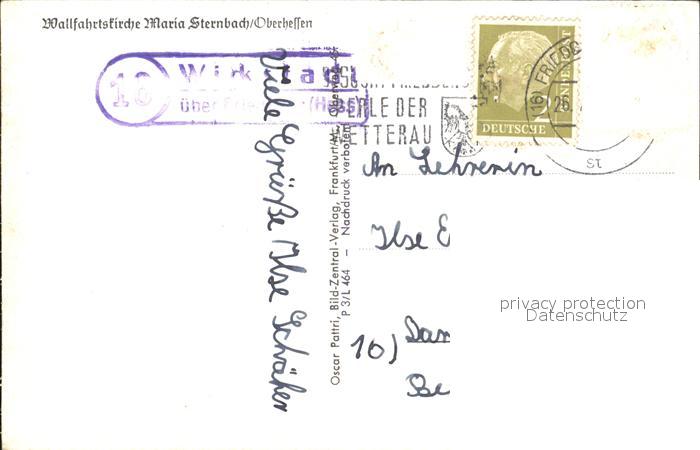 Wallfahrtskirche Maria Sternbach/Oberhessen
16
über (Hess)
PERLE DER
WETTERAU
DEUTSCHE
(16) FRIEDB
26.
Viele Grüße Ilse Schäfer
Oscar Pattri, Bild-Zentral-Verlag, Frankfurt/M.
P 3/L 464 – Nachdruck verboten
An Lehrerin
Ilse E
16)
privacy protection
Datenschutz